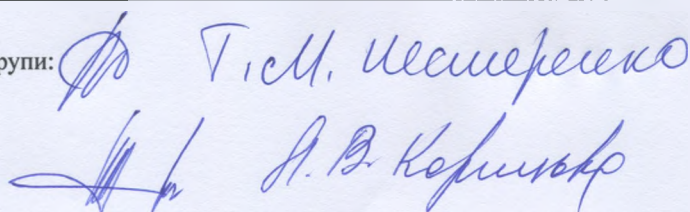 рупи: Т.М. Нестеренко
Н.В. Коринько